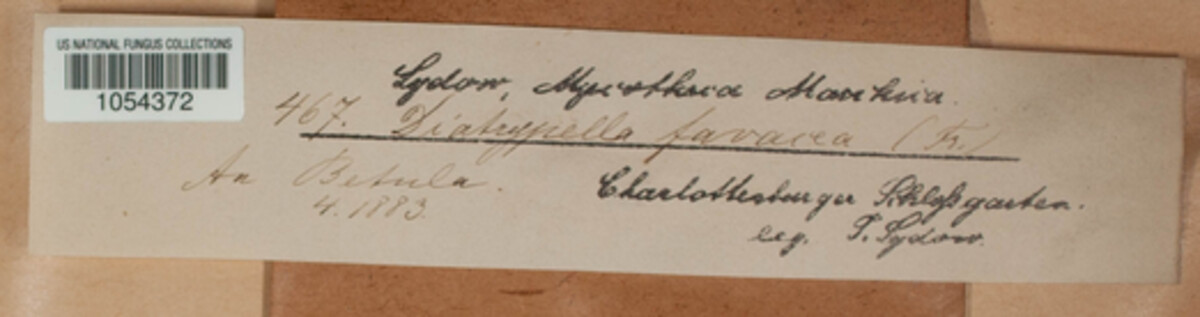 US NATIONAL FUNGUS COLLECTIONS
1054372
Sydow, Mycotheca Marchica.
467. Diatrypella favacea (Fr.)
An Betula.
4. 1883.
Charlottenburger Schloßgarten.
leg. P. Sydow.